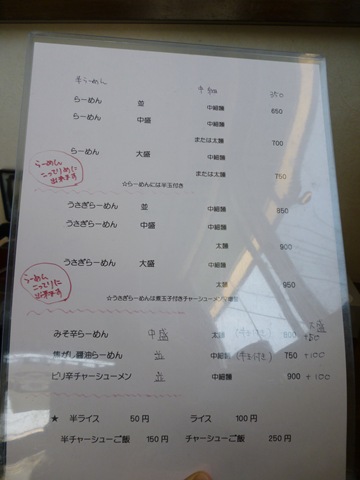 半らーめん 中細 350
らーめん 並 中細麺 650
らーめん 中盛 中細麺
または太麺 700
らーめん 大盛 中細麺
または太麺 750
らーめん
こってりめに
出来ます
☆らーめんには半玉付き
うさぎらーめん 並 中細麺 850
うさぎらーめん 中盛 中細麺
太麺 900
うさぎらーめん 大盛 中細麺
太麺 950
らーめん
こってりに
出来ます
☆うさぎらーめんは煮玉子付きチャーシューメン
みそ辛らーめん 中盛 太麺 (半玉付き) 800 大盛 +50
焦がし醤油らーめん 並 中細麺 (半玉付き) 750 +100
ピリ辛チャーシューメン 並 中細麺 900 +100
★ 半ライス 50円 ライス 100円
半チャーシューご飯 150円 チャーシューご飯 250円